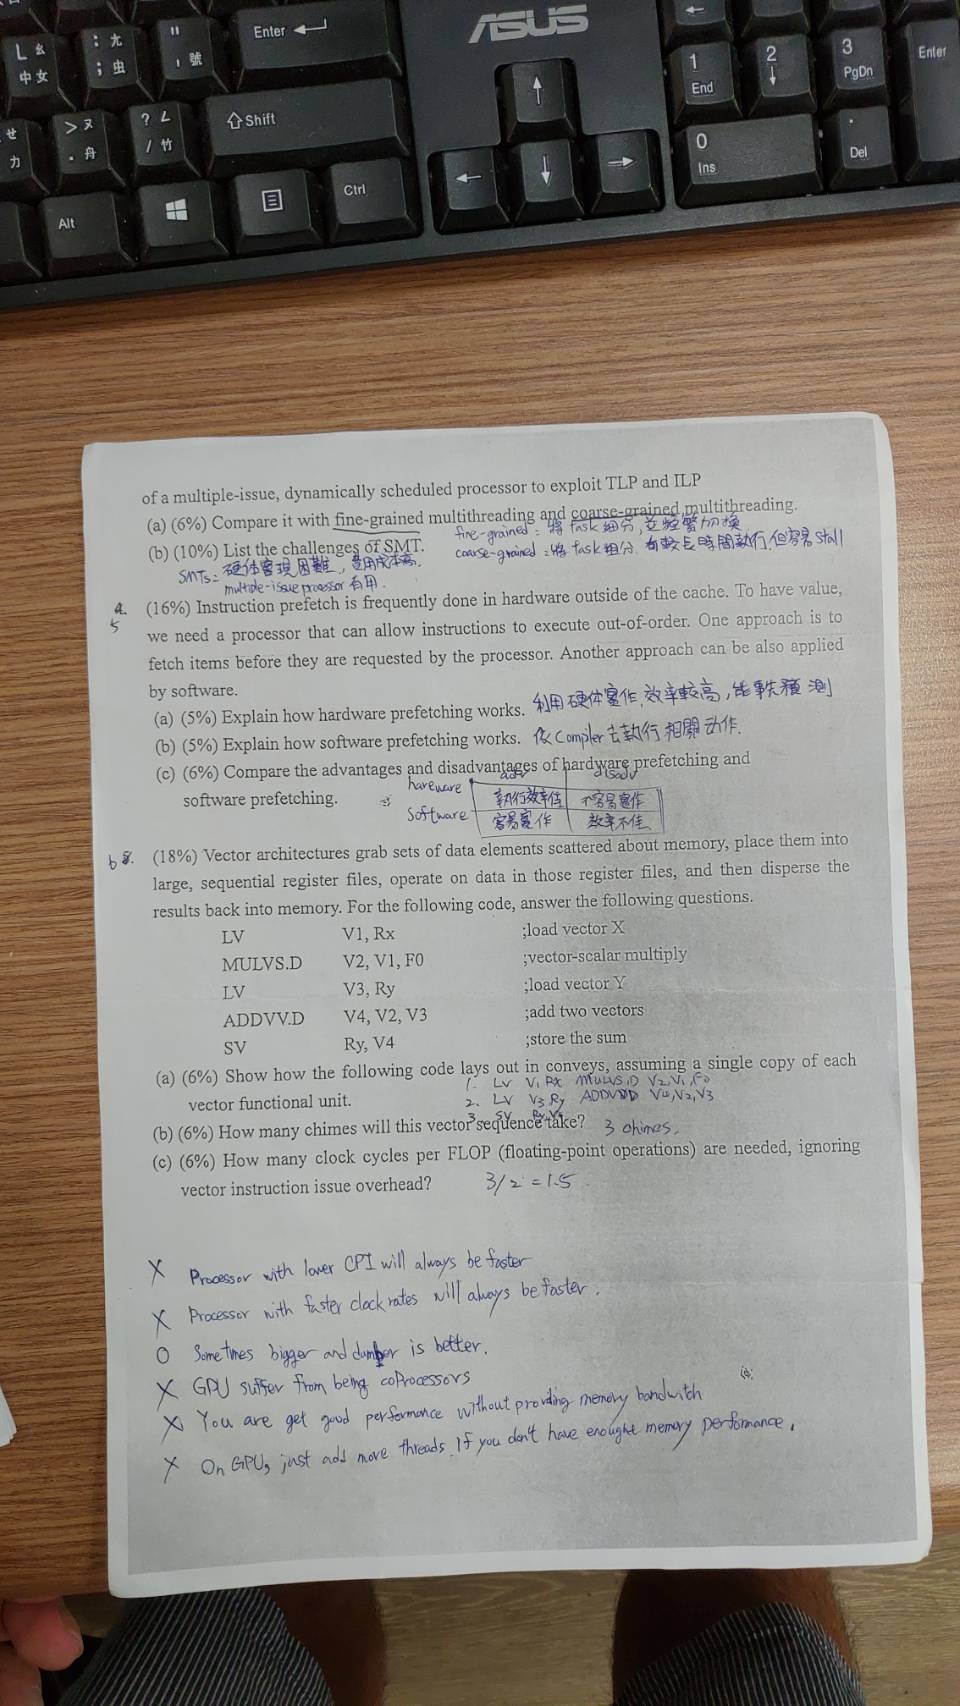 ASUS
L ㄠ
中 女
: ㄤ
; 虫
"
' 號
Enter
1
End
2
3
PgDn
Enter
ㄝ
力
> ㄡ
. 舟
? ㄥ
/ 竹
Shift
0
Ins
.
Del
Alt
Ctrl
of a multiple-issue, dynamically scheduled processor to exploit TLP and ILP
(a) (6%) Compare it with fine-grained multithreading and coarse-grained multithreading.
fine-grained : 將 task 細分, 並頻繁切換
(b) (10%) List the challenges of SMT.
coarse-grained : 將 task 粗分 有較長時間執行但容易 stall
SMTs: 硬体實現困難, 費用成本高.
multiple-issue processor 有用.
4.
5
(16%) Instruction prefetch is frequently done in hardware outside of the cache. To have value,
we need a processor that can allow instructions to execute out-of-order. One approach is to
fetch items before they are requested by the processor. Another approach can be also applied
by software.
(a) (5%) Explain how hardware prefetching works. 利用硬体實作, 效率較高, 能事先預測
(b) (5%) Explain how software prefetching works. 依 Compler 去執行相關动作.
(c) (6%) Compare the advantages and disadvantages of hardware prefetching and
software prefetching.
adv disadv
hareware 執行效率佳 不容易實作
software 容易實作 效率不佳
6 5. (18%) Vector architectures grab sets of data elements scattered about memory, place them into
large, sequential register files, operate on data in those register files, and then disperse the
results back into memory. For the following code, answer the following questions.
LV V1, Rx ;load vector X
MULVS.D V2, V1, F0 ;vector-scalar multiply
LV V3, Ry ;load vector Y
ADDVV.D V4, V2, V3 ;add two vectors
SV Ry, V4 ;store the sum
(a) (6%) Show how the following code lays out in conveys, assuming a single copy of each
vector functional unit.
1. LV V1 Rx MULVS.D V2,V1,F0
2. LV V3 Ry ADDVV.D V4,V2,V3
3. SV Ry,V4
(b) (6%) How many chimes will this vector sequence take? 3 chimes.
(c) (6%) How many clock cycles per FLOP (floating-point operations) are needed, ignoring
vector instruction issue overhead? 3/2 = 1.5
X Processor with lower CPI will always be faster
X Processor with faster clock rates will always be faster.
O Sometimes bigger and dumber is better.
X GPU suffer from being coprocessors
X You are get good performance without providing memory bandwitch
X On GPU, just add more threads if you don't have enought memory performance.